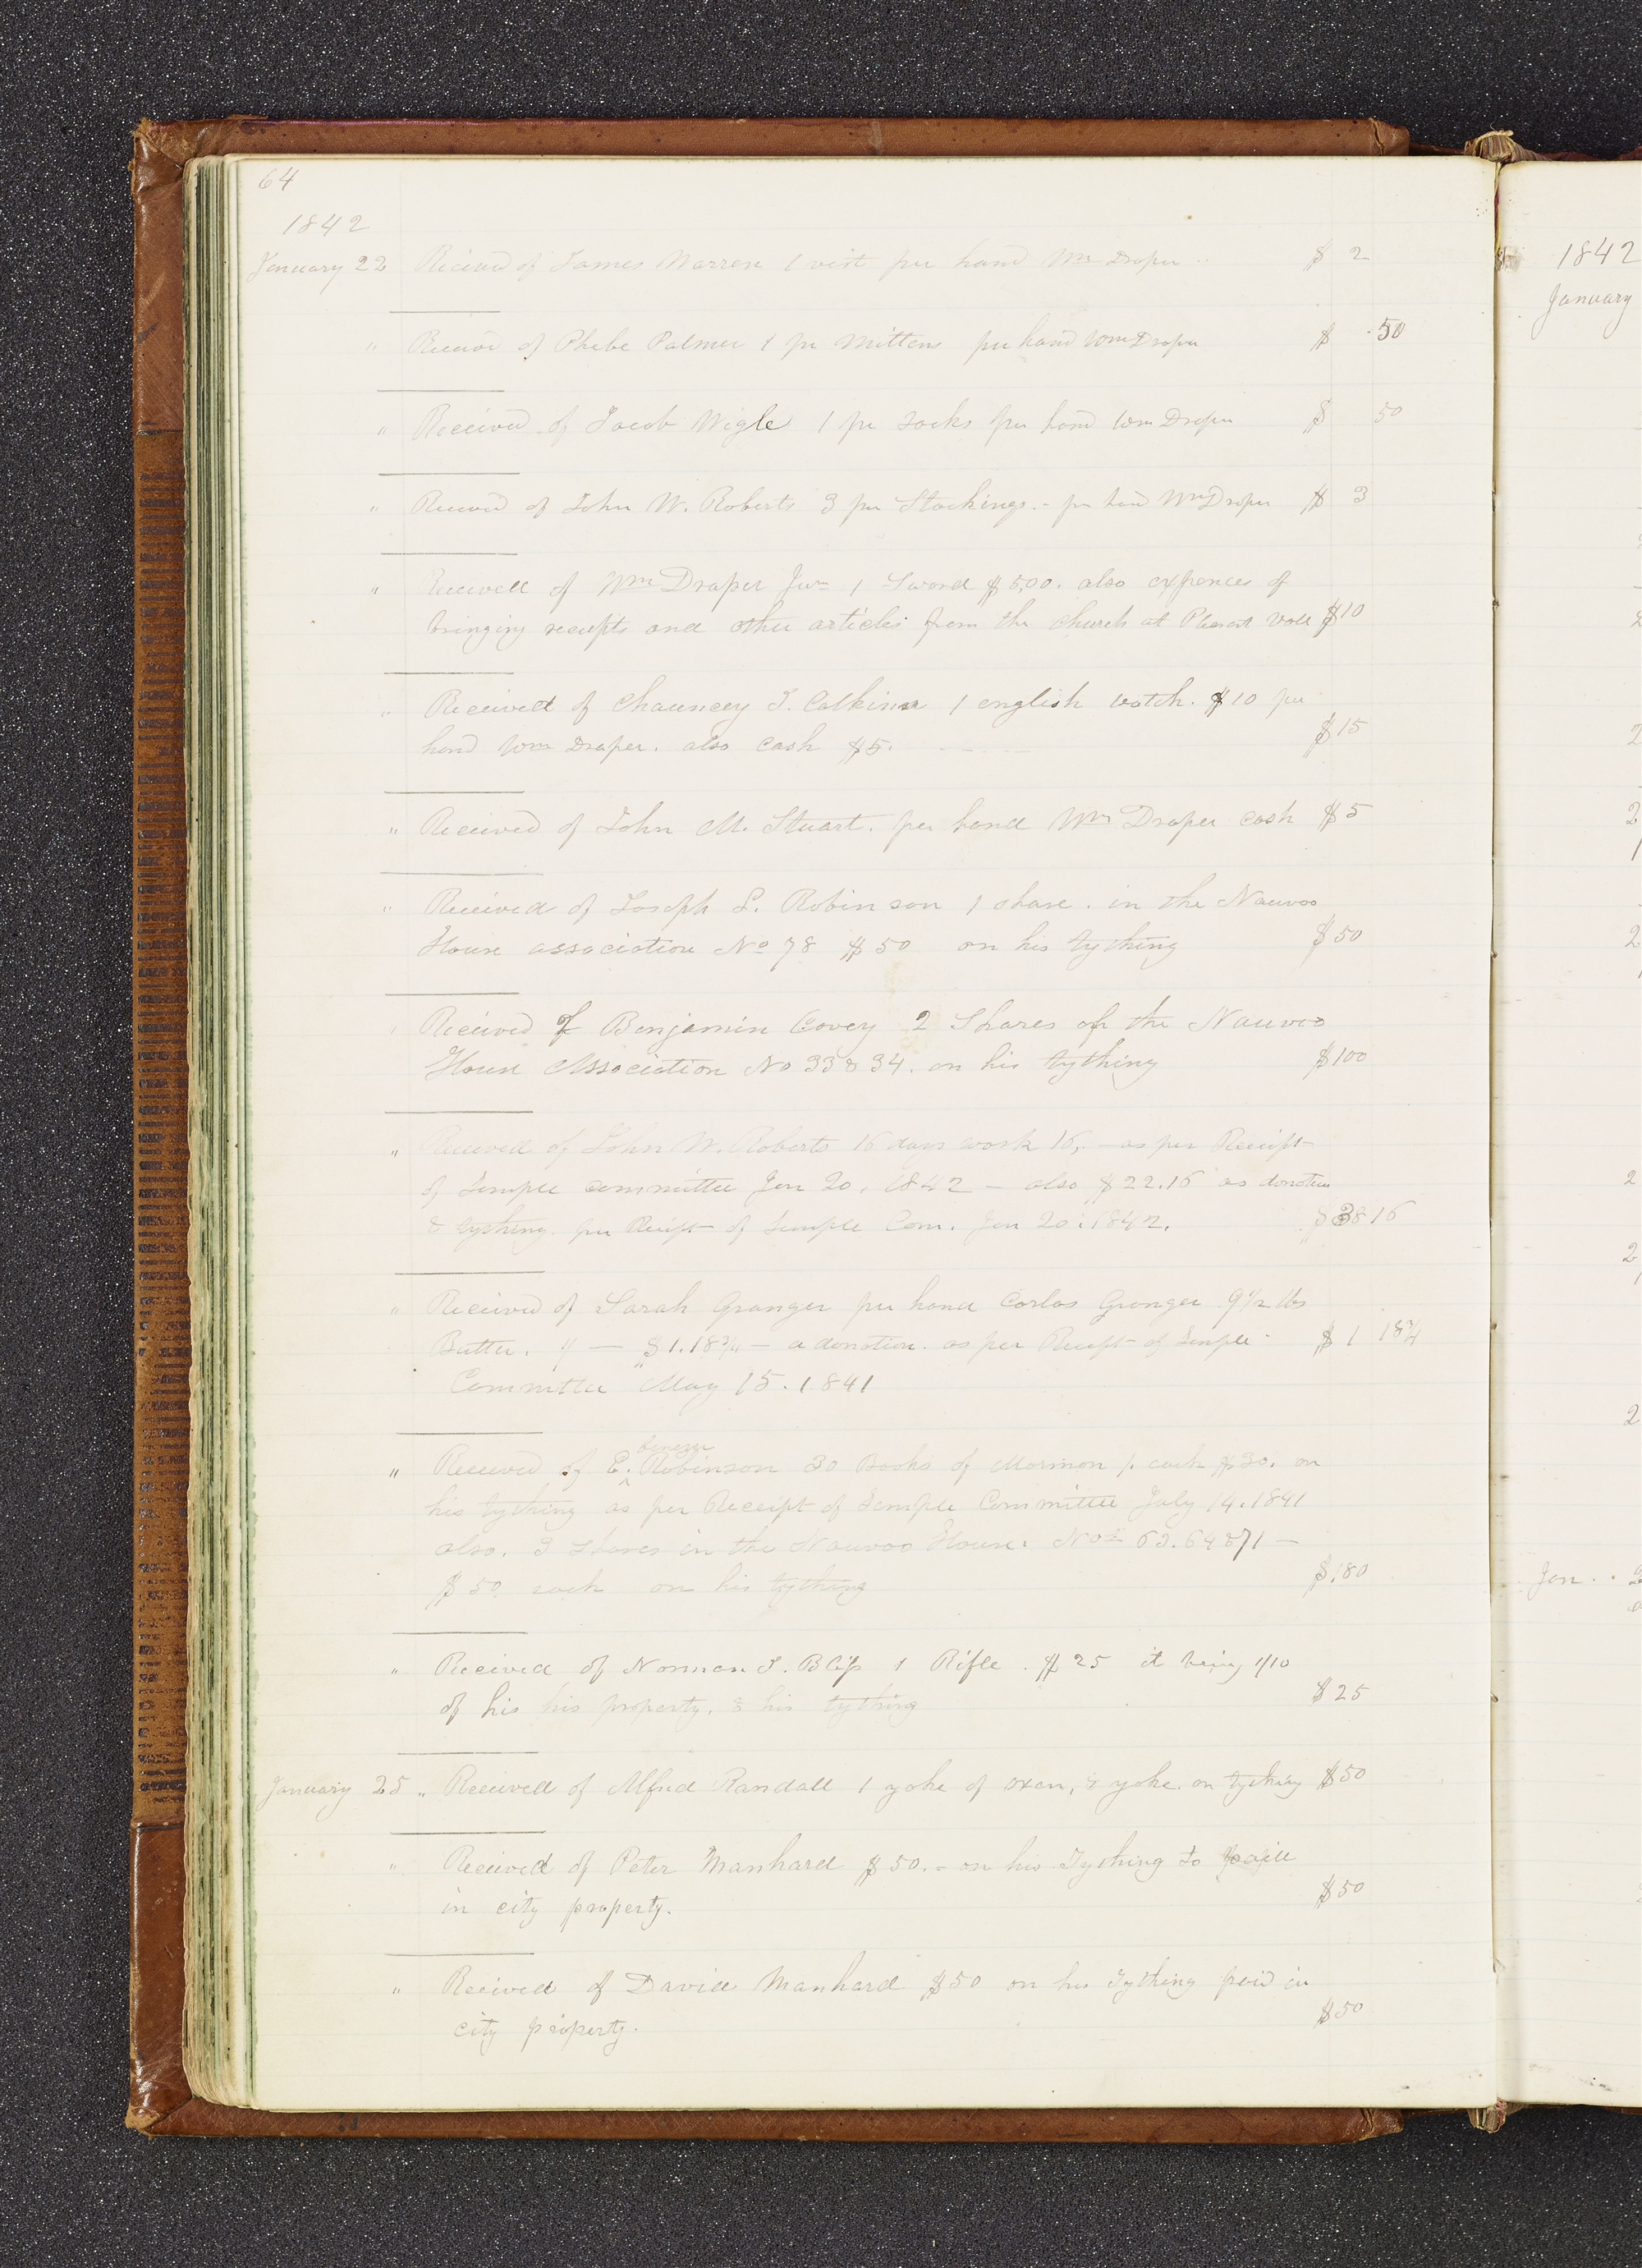 64
1842
January 22 Received of James Warren 1 vest per hand Wm Draper $ 2
" Received of Phebe Palmer 1 pr Mittens per hand Wm Draper $ .50
" Received of Jacob Wigle 1 pr socks per hand Wm Draper $ 50
" Received of John W. Roberts 3 pr Stockings. - per hand Wm Draper $ 3
" Received of Wm Draper Jun 1 Sword $5,00. also expences of
bringing receipts and other articles from the church at Pleasant Vale $10
" Received of Chauncey I. Calkins 1 english watch. $10 per
hand Wm Draper. also cash $5. $15
" Received of John M. Stuart. per hand Wm Draper cash $5
" Received of Joseph L. Robinson 1 share. in the Nauvoo
House association No 78 $50 on his tything $50
" Received of Benjamin Covey 2 Shares of the Nauvoo
House Association No 33 & 34. on his tything $100
" Received of John W. Roberts 16 days work 16, - as per Receipt
of Temple committee Jan 20, 1842 - also $22.16 as donation
& tything per Receipt of Temple Com. Jan 20. 1842. $38 16
" Received of Sarah Granger per hand Carlos Granger 9 1/2 lbs
Butter. — $1.18 3/4 - a donation. as per Receipt of Temple $1 18 3/4
Committee May 15. 1841
benezer
" Received of E. ^ Robinson 30 Books of Mormon 1. each $30. on
his tything as per Receipt of Temple Committee July 14. 1841
also. 3 Shares in the Nauvoo House. Nos 63. 64 & 71 -
$50 each on his tything $180
" Received of Norman I. Bliss 1 Rifle. $25 it being 1/10
of his his property. & his tything $25
January 25 " Received of Alfred Randall 1 yoke of oxen, & yoke. on tything $50
" Received of Peter Manhard $50. - on his Tything to
in city property. $50
" Received of David Manhard $50 on his Tything paid in
city property. $50
1842
January
2
2
2
1
2
2
2
1
2
Jan.. 2